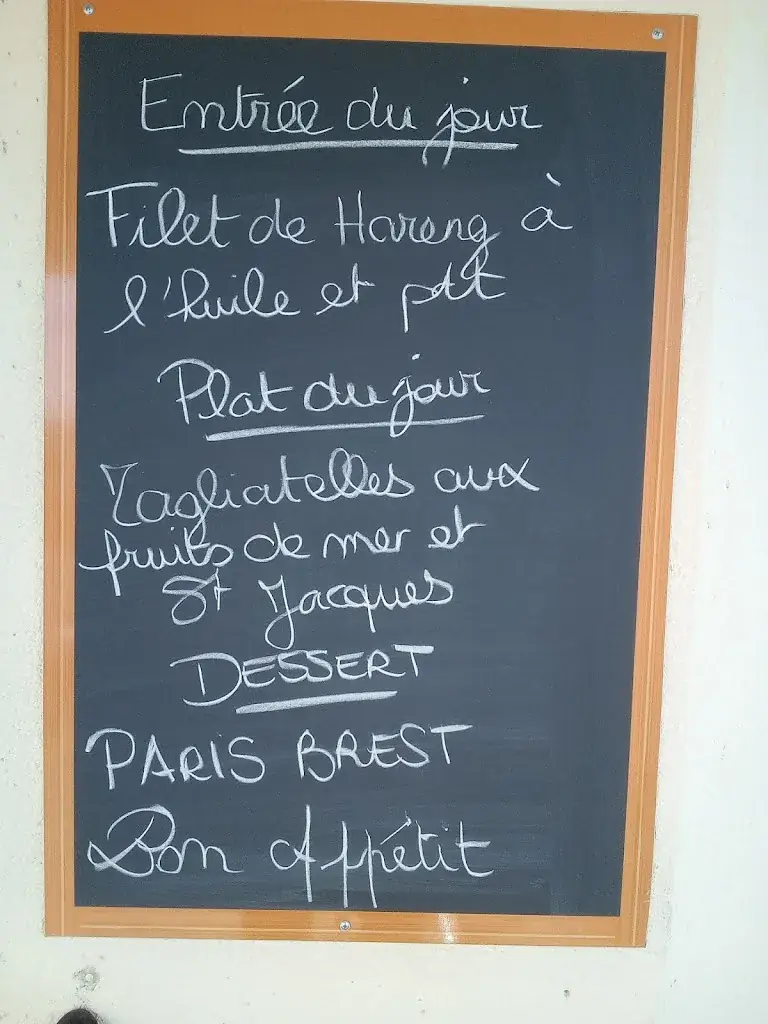 Entrée du jour
Filet de Hareng à
l'huile et pdt
Plat du jour
Tagliatelles aux
fruits de mer et
St Jacques
DESSERT
PARIS BREST
Bon Appétit